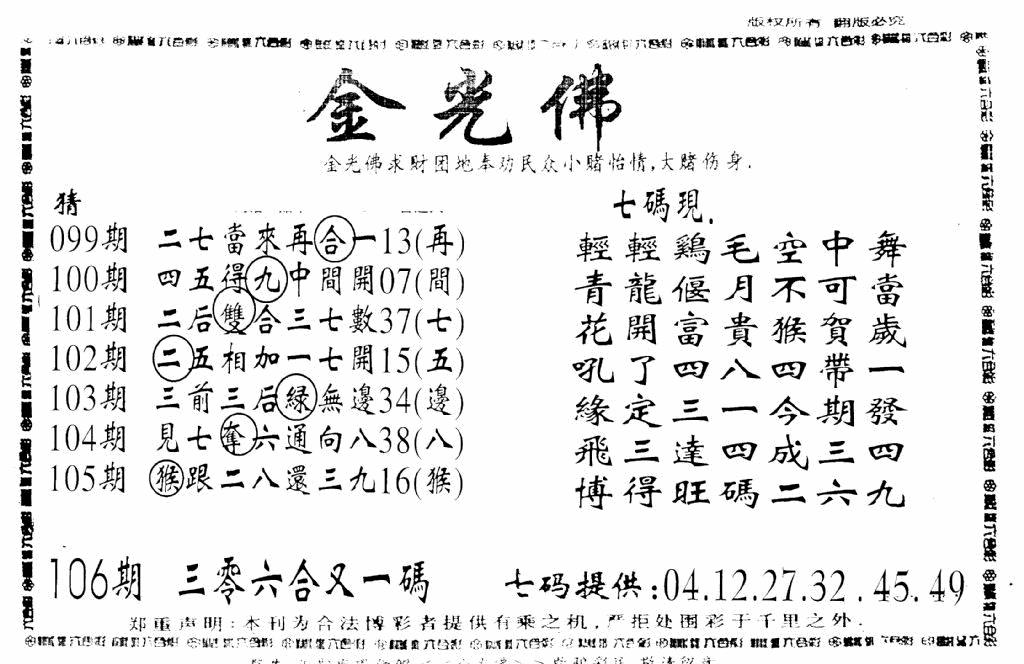 版权所有 翻版必究
金光佛
金光佛求財团地奉功民众小赌怡情,大赌伤身.
猜
099期 二七當來再合一13(再)
100期 四五得九中間開07(間)
101期 二后雙合三七數37(七)
102期 二五相加一七開15(五)
103期 三前三后緑無邊34(邊)
104期 見七奪六通向八38(八)
105期 猴跟二八還三九16(猴)
七碼現.
輕輕鷄毛空中舞
青龍偃月不可當
花開富貴猴賀歲
吼了四八四帶一
緣定三一今期發
飛三達四成三四
博得旺碼二六九
106期 三零六合又一碼
七码提供:04.12.27.32.45.49
郑重声明:本刊为合法博彩者提供有乘之机,严拒处围彩于千里之外.